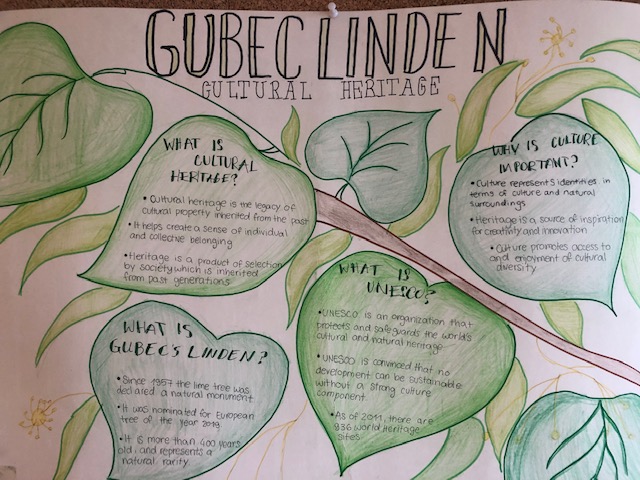 GUBEC LINDEN
CULTURAL HERITAGE
WHAT IS
CULTURAL
HERITAGE?
• Cultural heritage is the legacy of
cultural property inherited from the past
• It helps create a sense of individual
and collective belonging
• Heritage is a product of selection
by society which is inherited
from past generations
WHY IS CULTURE
IMPORTANT?
• Culture represents identities in
terms of culture and natural
surroundings
• Heritage is a source of inspiration
for creativity and innovation
• Culture promotes access to
and enjoyment of cultural
diversity
WHAT IS
UNESCO?
• UNESCO is an organization that
protects and safeguards the world's
cultural and natural heritage
• UNESCO is convinced that no
development can be sustainable
without a strong culture
component
• As of 2011, there are
936 world Heritage
sites
WHAT IS
GUBEC'S LINDEN?
• Since 1957 the lime tree was
declared a natural monument
• It was nominated for European
tree of the year 2019.
• It is more than 400 years
old, and represents a
natural rarity